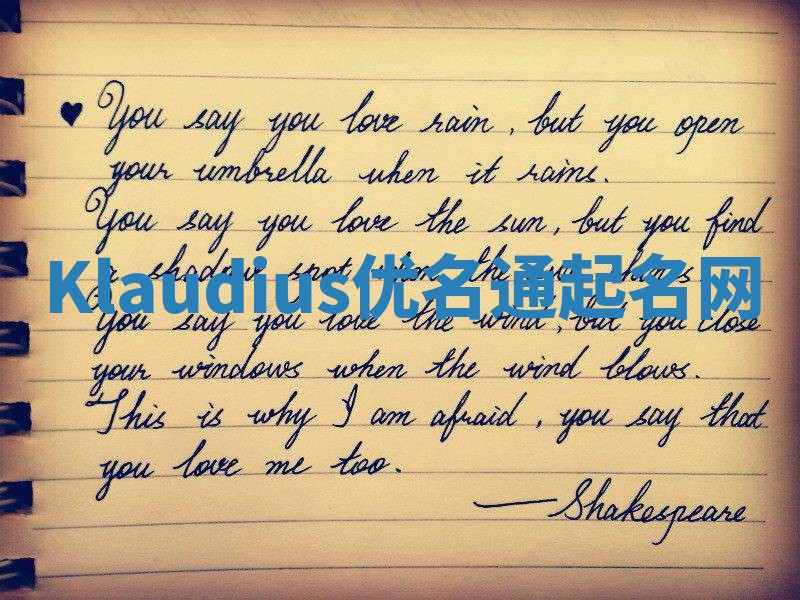 You say you love rain, but you open
your umbrella when it rains.
You say you love the sun, but you find
a shadow spot when the sun shines.
Klaudius优名通起名网
You say you love the wind, but you close
your windows when the wind blows.
This is why I am afraid, you say that
you love me too.
—Shakespeare